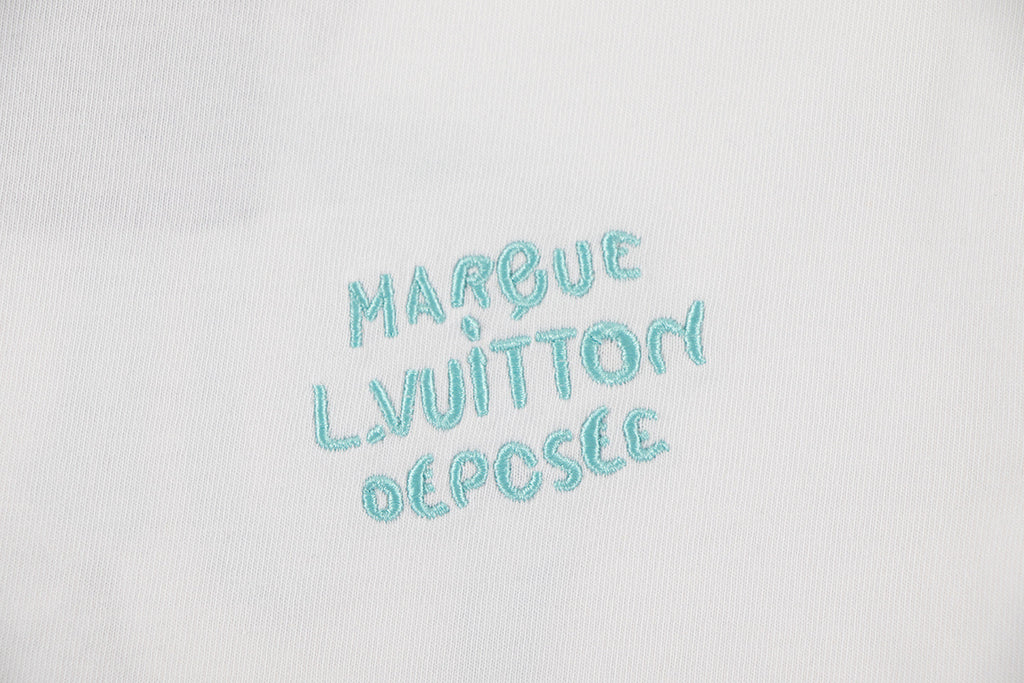 MARQUE
L.VUITTON
DEPOSEE